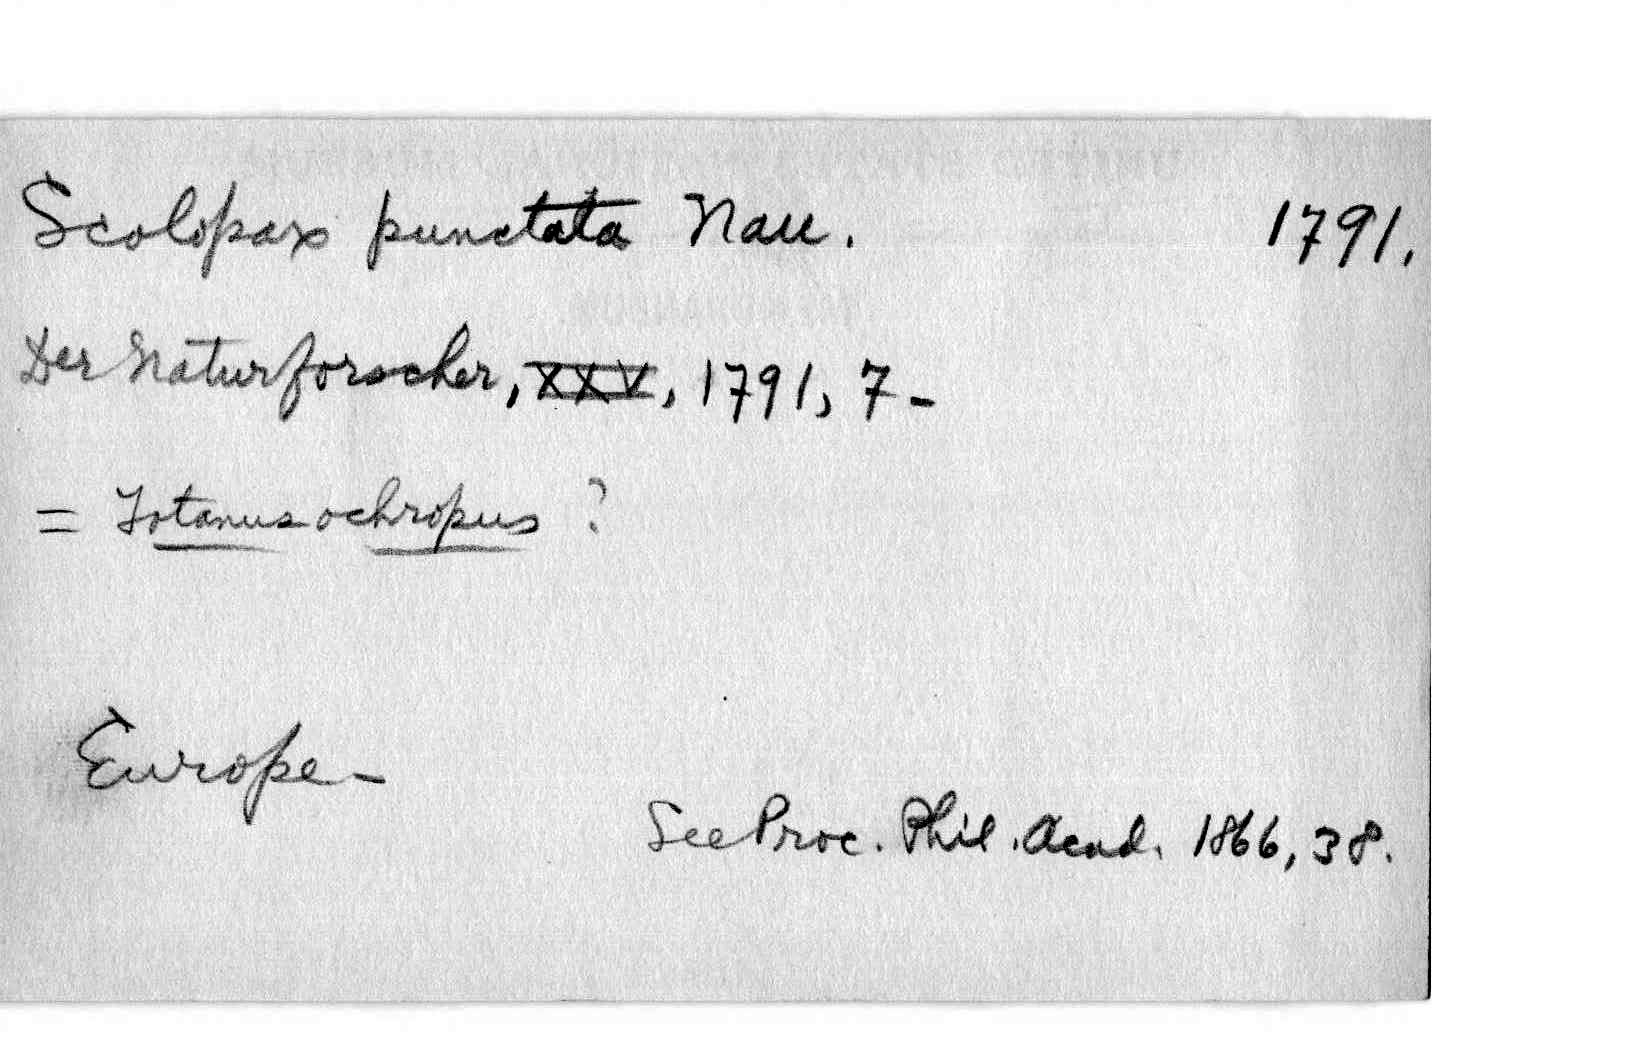 Scolopax punctata Nau. 1791.
Der Naturforscher, XXV, 1791, 7-
= Totanus ochropus ?
Europe-
See Proc. Phil. Acad. 1866, 38.